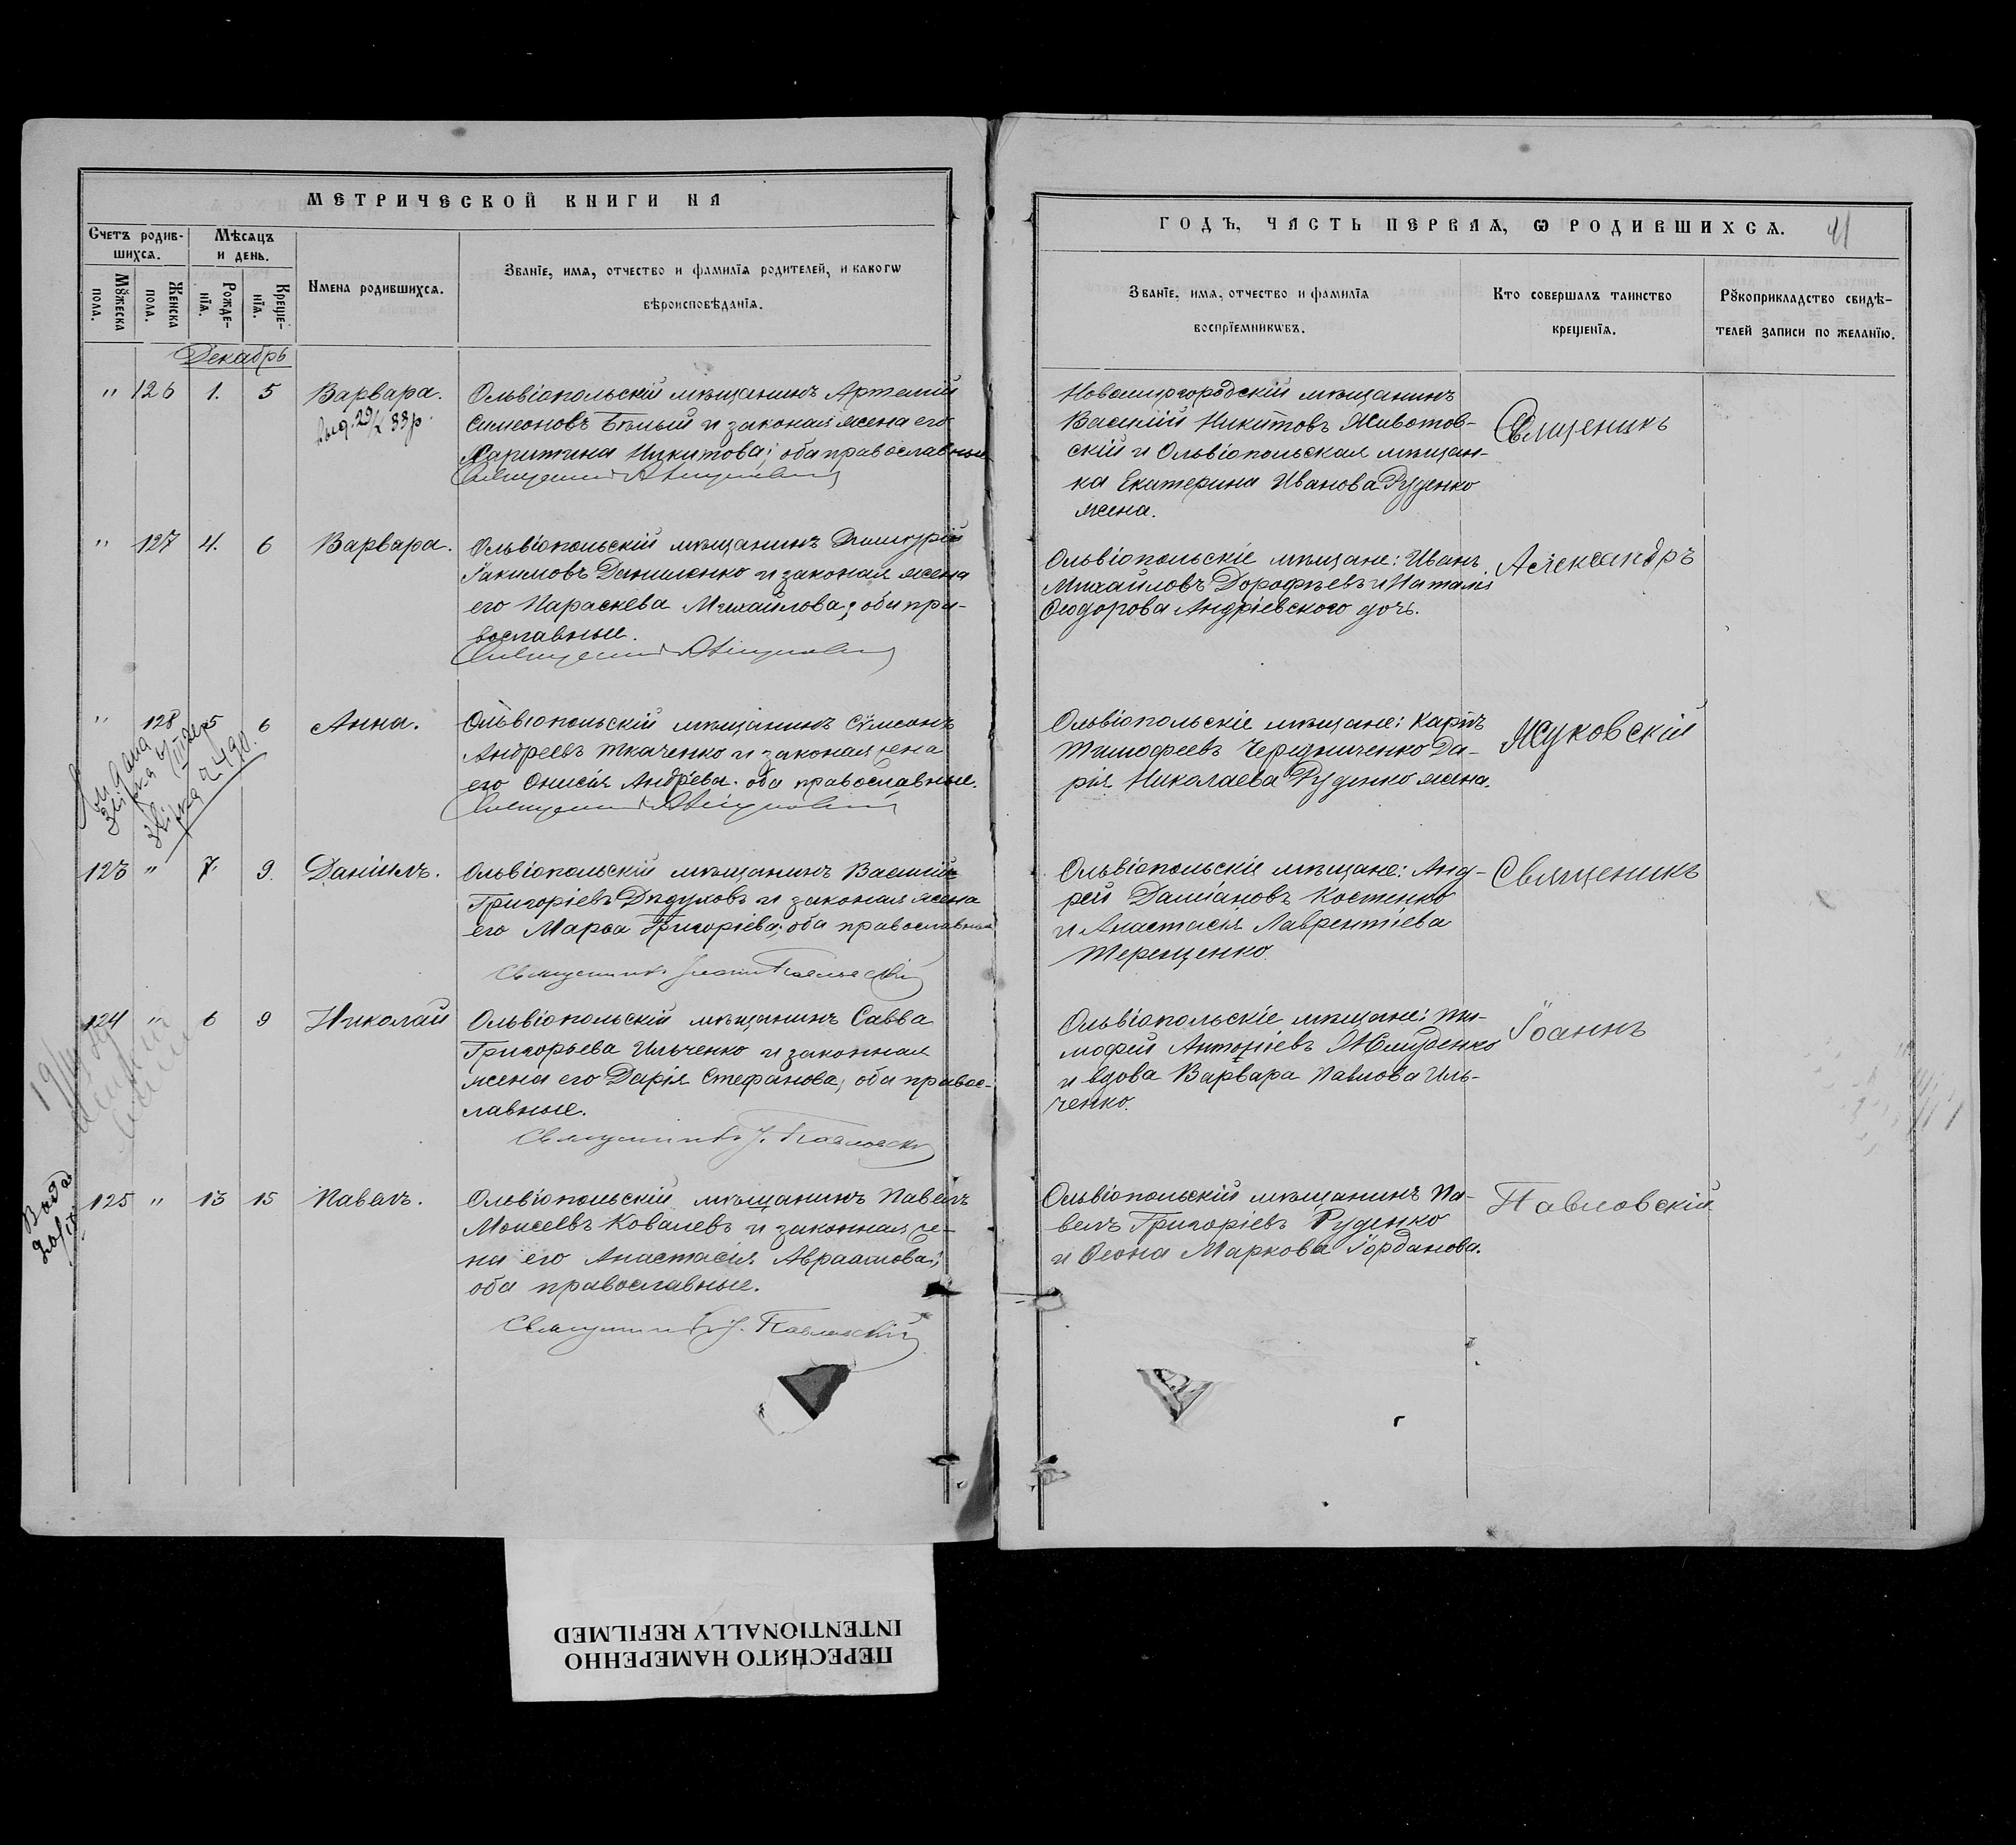 МЕТРИЧЕСКОЙ КНИГИ НА
Счетъ родив-
шихся.
Мѣсяцъ
и день.
Имена родившихся.
Званїе, имя, отчество и фамилїя родителей, и какогѡ
вѣроисповѣданїя.
Мꙋжеска
пола.
Женска
пола.
Рожде-
нїя.
Креще-
нїя.
Декабрь
" 126 1. 5 Варвара.
Ольвіопольскій мѣщанинъ Артемій
Симеоновъ Бѣлый и законая жена его
Харитина Никитова; оба православные
" 127 4. 6 Варвара.
Ольвіопольскій мѣщанинъ
Іакимовъ Даниленко и законая жена
его Параскева Михайлова; оба пра-
вославные.
" 128 5 6 Анна.
Ольвіопольскій мѣщанинъ Сѵмеонъ
Андреевъ Ткаченко и законая жена
его Онисія Андрева. оба православные.
123 " 7. 9. Даніилъ.
Ольвіопольскій мѣщанинъ Василій
Григоріевъ и законая жена
его Марѳа Григоріева; оба православные
124 " 6 9 Николай
Ольвіопольскій мѣщанинъ Савва
Григорьева Ильченко и законная
жена его Дарія Стефанова; оба правос-
лавные.
Священникъ І. Павловскій
125 " 13 15 Павелъ.
Ольвіопольскій мѣщанинъ Павелъ
Моисеевъ Ковалевъ и законная же-
на его Анастасія Авраамова;
оба православные.
Священникъ І. Павловскій
ГОДЪ, ЧАСТЬ ПЕРВАЯ, Ѡ РОДИВШИХСЯ.
41
Званїе, имя, отчество и фамилїя
воспрїемникѡвъ.
Кто совершалъ таинство
крещенїя.
Рꙋкоприкладство свидѣ-
телей записи по желанїю.
Новомиргородскій мѣщанинъ
Василій Никитовъ Животов-
скій и Ольвіопольская мѣщан-
ка Екатерина Иванова Руденко
жена.
Священикъ
Ольвіопольскіе мѣщане: Иванъ
Михайловъ Дорофѣевъ и Наталія
Ѳеодорова Андріевского дочь.
Александръ
Ольвіопольскіе мѣщане: Карпъ
Тимофеевъ Чередниченко Да-
рія Николаева Руденко жена.
Жуковскій
Ольвіопольскіе мѣщане: Анд-
рей Даміановъ Костенко
и Анастасія Лаврентіева
Терещенко.
Священикъ
Ольвіопольскіе мѣщане: Ти-
мофей Антоніевъ
и вдова Варвара Павлова Иль-
ченко.
Іоаннъ
Ольвіопольскій мѣщанинъ Па-
велъ Григоріевъ Руденко
и Маркова Іорданова.
Павловскій
ПЕРЕСНЯТО НАМЕРЕННО
INTENTIONALLY REFILMED